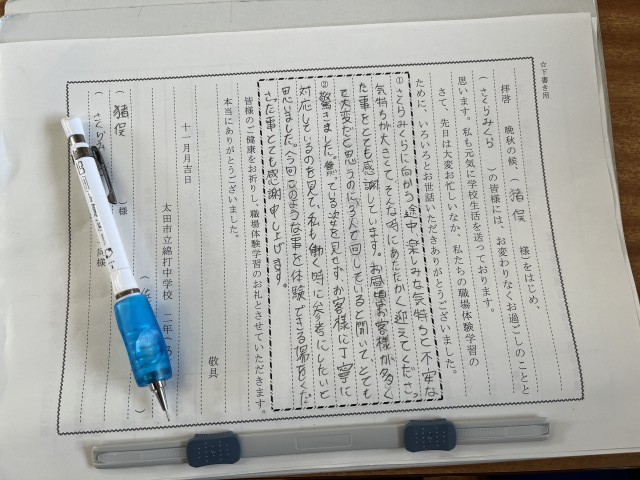 ☆下書き用
拝啓 晩秋の候、(猪俣 様)をはじめ、
(さくらみくら )の皆様には、お変わりなくお過ごしのことと
思います。私も元気に学校生活を送っております。
さて、先日は大変お忙しいなか、私たちの職場体験学習の
ために、いろいろとお世話いただきありがとうございました。
①さくらみくらに向かう途中、楽しみな気持ちと不安な
気持ちが大きくてそんな時にあたたかく迎えてくださっ
た事をとても感謝しています。お昼頃お客様が多く
て大変だと思うのに3人で回していると聞いて、とても
②驚きました。焦っている姿を見せずお客様に丁寧に
対応しているのを見て、私も働く時に参考にしたいと
思いました。今回このような事を体験できる場をくだ
さった事とても感謝申し上げます。
皆様のご健康をお祈りし、職場体験学習のお礼とさせていただきます。
本当にありがとうございました。
敬具
十一月吉日
太田市立綿打中学校 二年
(猪俣 )様
(さくらみ